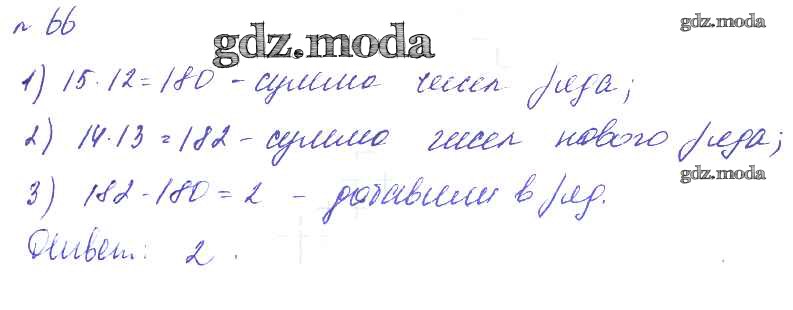 № 66
gdz.moda
gdz.moda
1) 15·12=180 - сумма чисел ряда;
2) 14·13=182 - сумма чисел нового ряда;
gdz.moda
3) 182-180=2 - добавили в ряд.
Ответ: 2.